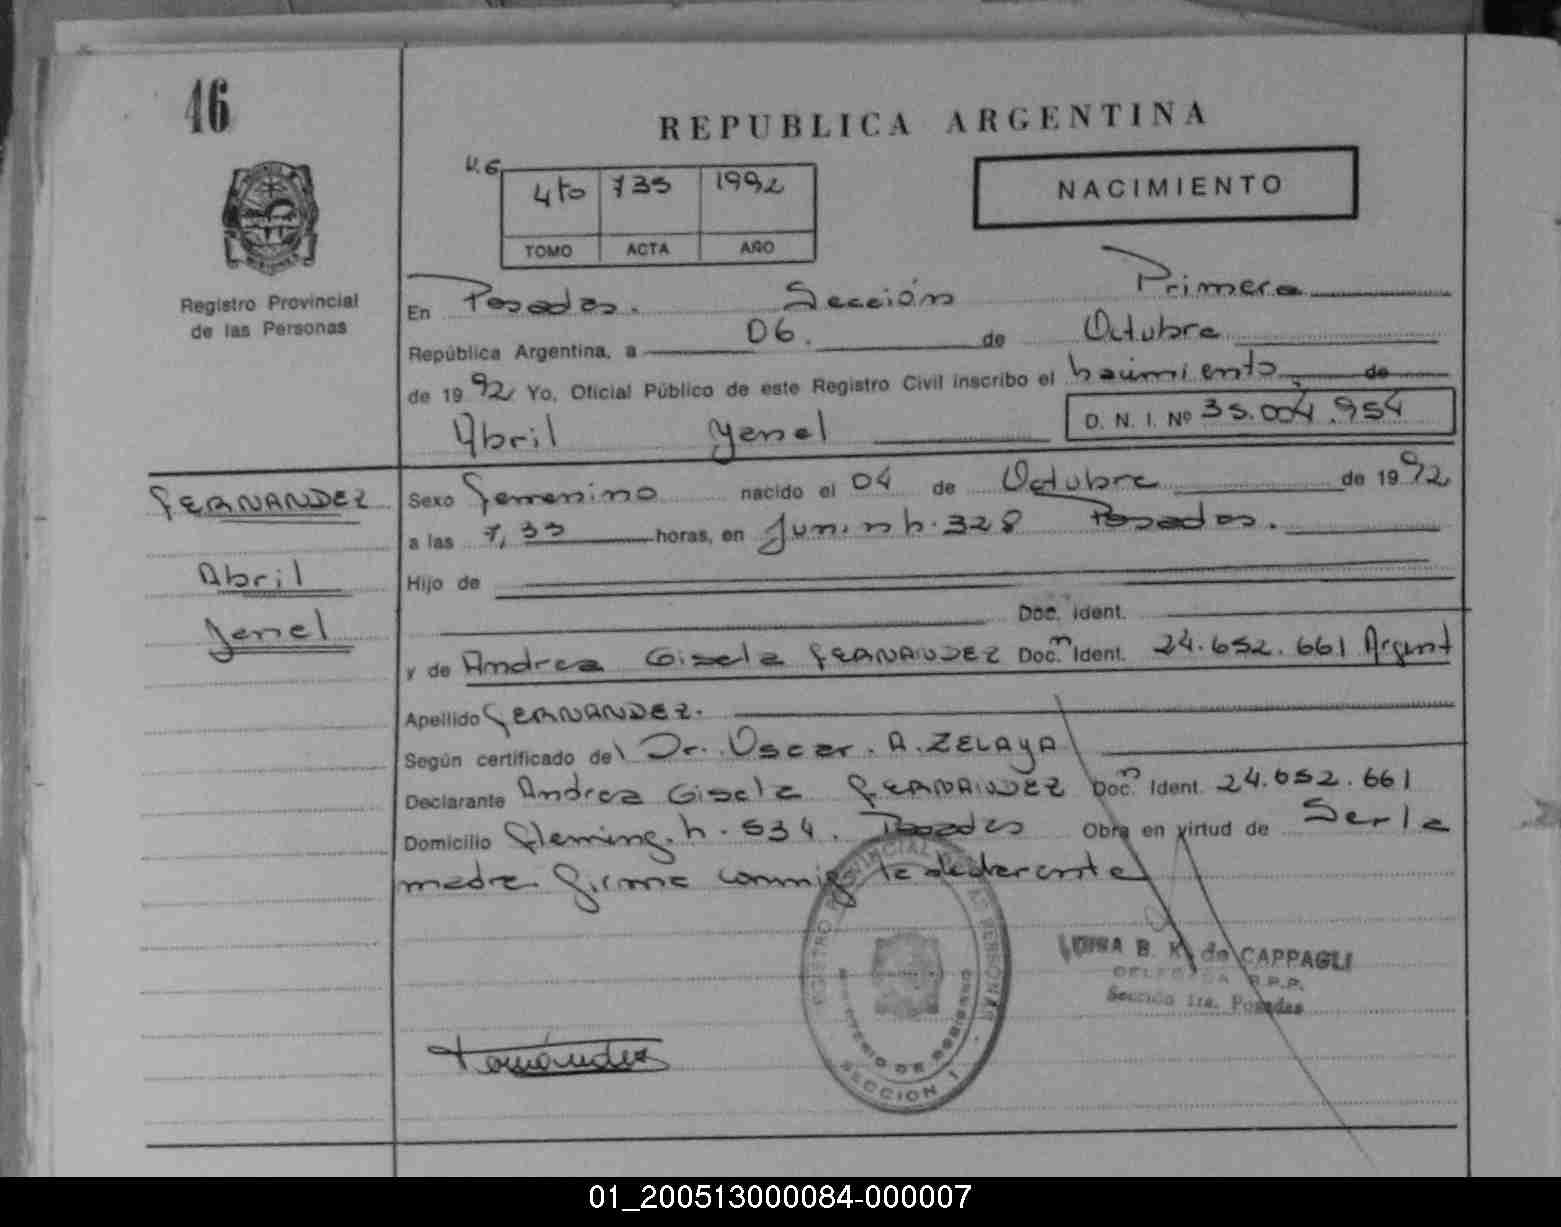 46
REPUBLICA ARGENTINA
V. 6
4to 735 1992
TOMO ACTA AÑO
NACIMIENTO
Registro Provincial
de las Personas
En Posadas. Sección Primera
República Argentina, a 06. de Octubre
de 1992 Yo, Oficial Público de este Registro Civil inscribo el nacimiento de
Abril Yenel D. N. I. Nº 35.004.954
FERNANDEZ
Abril
Yenel
Sexo femenino nacido el 04 de Octubre de 1992
a las 7,35 horas, en Junin n. 328 Posadas.
Hijo de
Doc. Ident.
y de Andrea Gisela FERNANDEZ Doc. Ident. 24.652.661 Argent
Apellido FERNANDEZ.
Según certificado del Dr. Oscar. A. ZELAYA
Declarante Andrea Gisela FERNANDEZ Doc. Ident. 24.652.661
Domicilio Fleming. n. 534. Posadas Obra en virtud de Ser la
madre firma conmig la declarante
REGISTRO PROVINCIAL DE LAS PERSONAS
MINISTERIO DE GOBIERNO
SECCION 1
B. K. de CAPPAGLI
DELEGADA R.P.P.
Sección 1ra. Posadas
Fernández
01_200513000084-000007